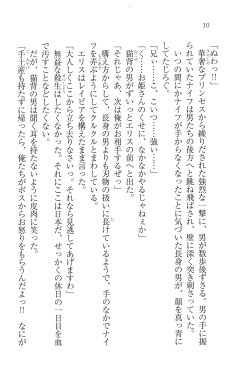 10
「ぬわっ!!」
華奢なプリンセスから繰りだされた強烈な一撃に、男が数歩後ずさる。男の手に握
られていたナイフは男たちの後方へと跳ね飛ばされ、壁に深く突き刺さっていた。
いつの間にかナイフが手からなくなったことに気づいた長身の男が、顔を真っ青に
してたじろぐ。
「つ、強い……」
「く……お姫さんのくせに、なかなかやるじゃねぇか」
猫背の男がずいっとエリスの前へと出る。
「それじゃあ、次は俺がお相手するぜっ」
構え方からして、長身の男よりも刃物の扱いに長けているようで、手のなかでナイ
フを弄ぶようにしてクルクルしている。
エリスはレイピアを構えたまま言った。
「大人しくここから立ち去りなさいっ。それなら見逃してあげますわ」
「無益な殺生はしたくない。それにここは日本だ、せっかくの休日の一日目を血
で汚すことなどしたくない」
だが、猫背の男は聞く耳を持たないように皮肉に笑った。
「手土産も持たずに帰ったら、俺たちがボスからお怒りをもらうんだよっ!! なにが